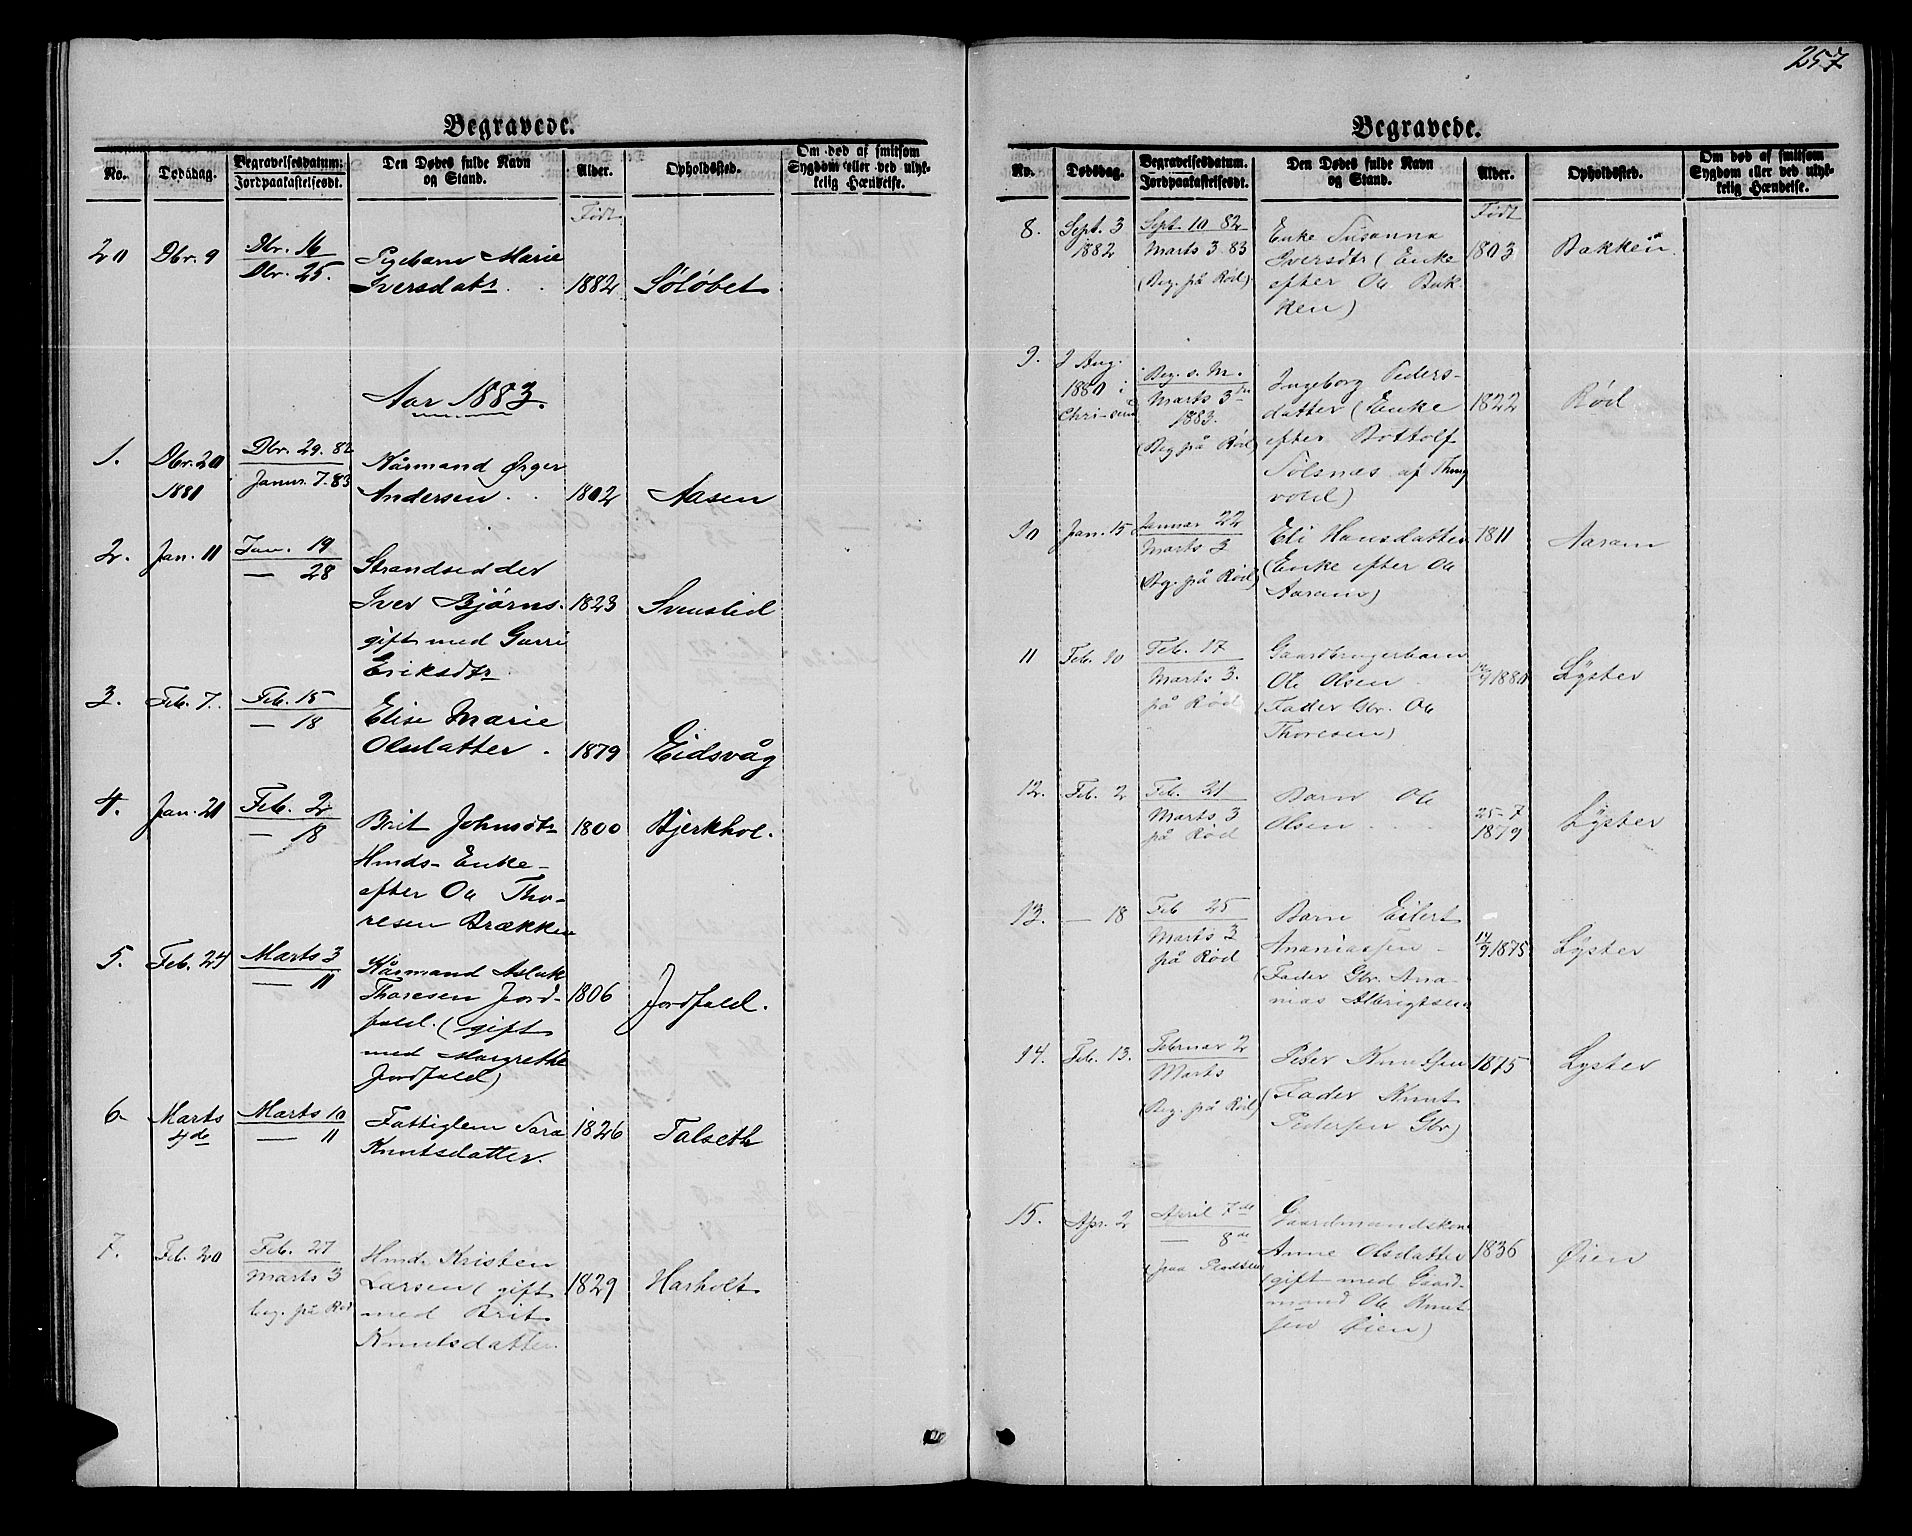 257
Begravede.
No.
Dødsdag.
Begravelsesdatum:
Jordpaakastelsesdt.
Den Dødes fulde Navn
og Stand.
Alder.
Opholdssted.
Om død af smitsom
Sygdom eller ved ulyk-
kelig Hændelse.
Født
20 Dbr. 9 Dbr. 16
Dbr. 25.
Pigebarn Marie
Iversdatr. 1882 Søløbet
Aar 1883.
1. Dbr. 20 Dbr. 29. 82
Janur. 7. 83
Kårmand Ørger
Andersen. 1802 Aasen
2. Jan. 11 Jan. 19
— 28
Strandsidder
Iver Bjørns. 1823 Svenslid
gift med Gurri
Eriksdtr.
3. Feb. 7. Feb. 15
— 18
Elise Marie
Olsdatter. 1879 Eidsvåg
4. Jan. 21 Feb. 2
— 18
Brit Johnsdtr 1800 Bjerkhol.
Hmds- Enke-
efter Ole Tho-
resen Brækken
5. Feb. 24 Marts 3
— 11
Kårmand Aslak
Thoresen Jord- 1806 Jordfald.
fald. (gift
med Margrethe
Jordfald)
6. Marts
4de
Marts 10
— 11
Fattiglem Sara 1826 Talseth
Knutsdatter.
7. Feb. 20 Feb. 27
Marts 3
beg. på Rød
Hmd. Kristen
Larsen (gift 1829 Harholt
med Brit
Knutsdatter.
Begravede.
No.
Dødsdag.
Begravelsesdatum.
Jordpaakastelsesdt.
Den Dødes fulde Navn
og Stand.
Alder.
Opholdssted.
Om død af smitsom
Sygdom eller ved ulyk-
kelig Hændelse.
Født
8. Sept. 3
1882
Sept. 10 82
Marts 3. 83
(Beg. på Rød)
Enke Susanna
Iversdtr (Enke 1803 Bakken.
efter Ole Bak-
ken)
9. 2 Aug.
1880 i
Beg. s. M.
Marts 3
1883.
(Beg på Rød)
Ingeborg Peders-
datter (Enke 1822 Rød
efter Bottolf
Solsnæs af Thing
vold)
10 Jan. 15 Januar 22
Marts 3
(Beg. på Rød)
Eli Hansdatter 1811 Aaram
(Enke efter Ole
Aaram)
11 Feb. 10 Feb. 17
Marts 3.
på Rød
Gaardbrugerbarn
Ole Olsen 1880 Lyster
(Fader Gbr. Ole
Thoresen)
12. Feb. 2 Feb. 21
Marts 3
på Rød
Barn Ole
Olsen 25-7
1879 Lyster
13. — 18 Feb 25
Marts 3
på Rød
Barn Eilert
Ananiassen 1875 Lyster
(Fader Gbr. Ana-
nias Albrigtsen
14. Feb. 13. Februar 2
Marts
(Beg. på Rød)
Peder Knutsen 1875 Lyster
(Fader Knut
Pedersen Gbr)
15. Apr. 2 April 7de
— 8de
Gaardmandskone
Anne Olsdatter 1836 Øien
(gift med Gaard-
mand Ole Knut-
sen Øien)